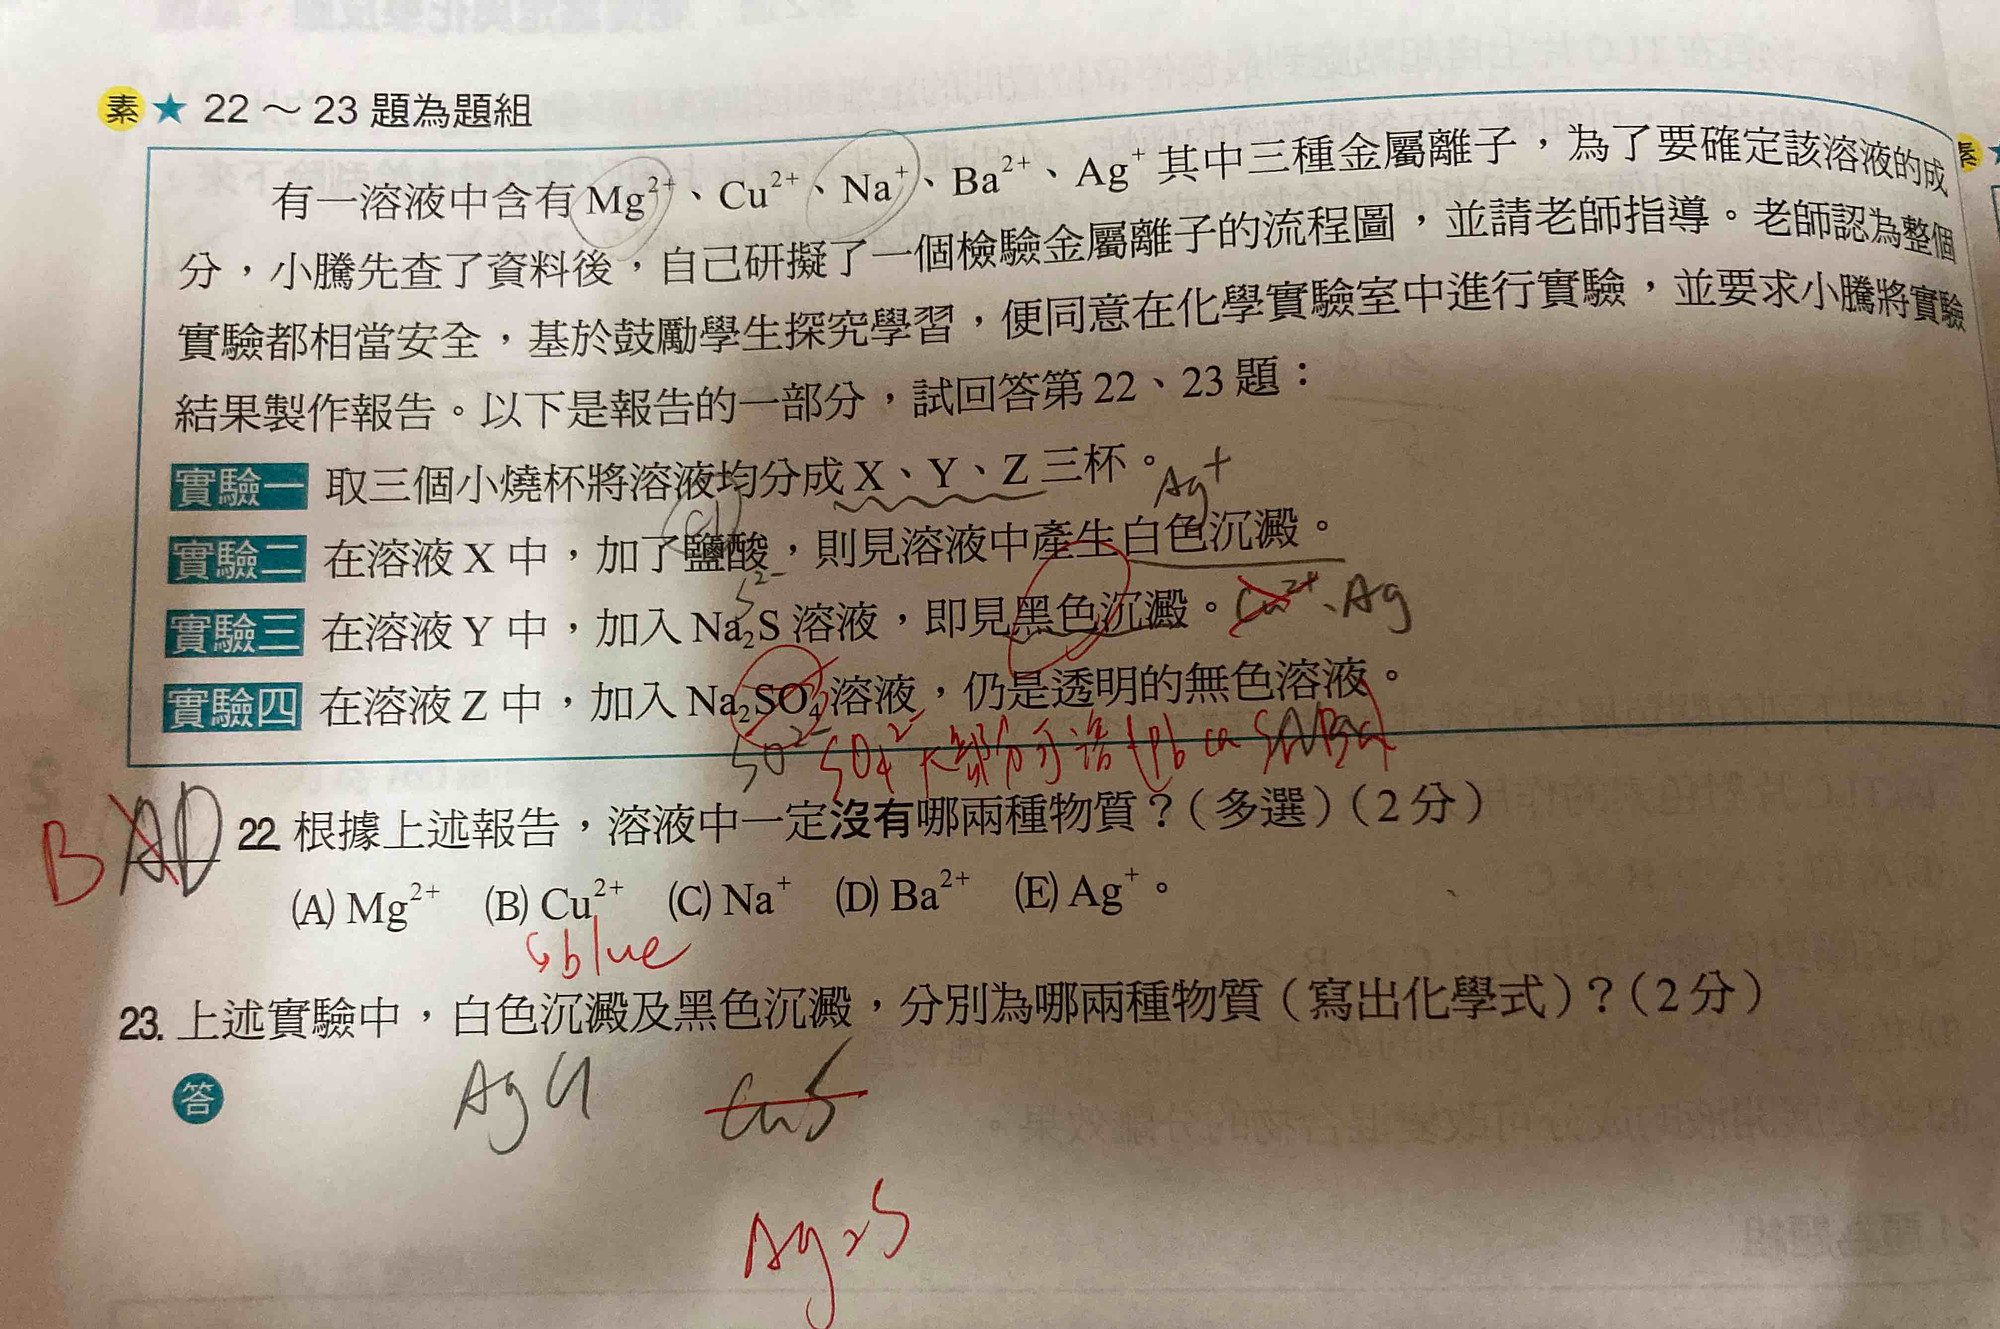 素 ★ 22～23 題為題組
有一溶液中含有 Mg²⁺、Cu²⁺、Na⁺、Ba²⁺、Ag⁺ 其中三種金屬離子，為了要確定該溶液的成
分，小騰先查了資料後，自己研擬了一個檢驗金屬離子的流程圖，並請老師指導。老師認為整個
實驗都相當安全，基於鼓勵學生探究學習，便同意在化學實驗室中進行實驗，並要求小騰將實驗
結果製作報告。以下是報告的一部分，試回答第 22、23 題：
實驗一 取三個小燒杯將溶液均分成 X、Y、Z 三杯。
Ag⁺
實驗二 在溶液 X 中，加了鹽酸，則見溶液中產生白色沉澱。
S²⁻
實驗三 在溶液 Y 中，加入 Na₂S 溶液，即見黑色沉澱。 Cu²⁺、Ag
實驗四 在溶液 Z 中，加入 Na₂SO₄ 溶液，仍是透明的無色溶液。
SO²⁻ SO₄²⁻大部分可溶
BAD 22. 根據上述報告，溶液中一定沒有哪兩種物質？（多選）（2 分）
(A) Mg²⁺ (B) Cu²⁺ (C) Na⁺ (D) Ba²⁺ (E) Ag⁺。
blue
23. 上述實驗中，白色沉澱及黑色沉澱，分別為哪兩種物質（寫出化學式）？（2 分）
答 AgCl CuS
Ag₂S